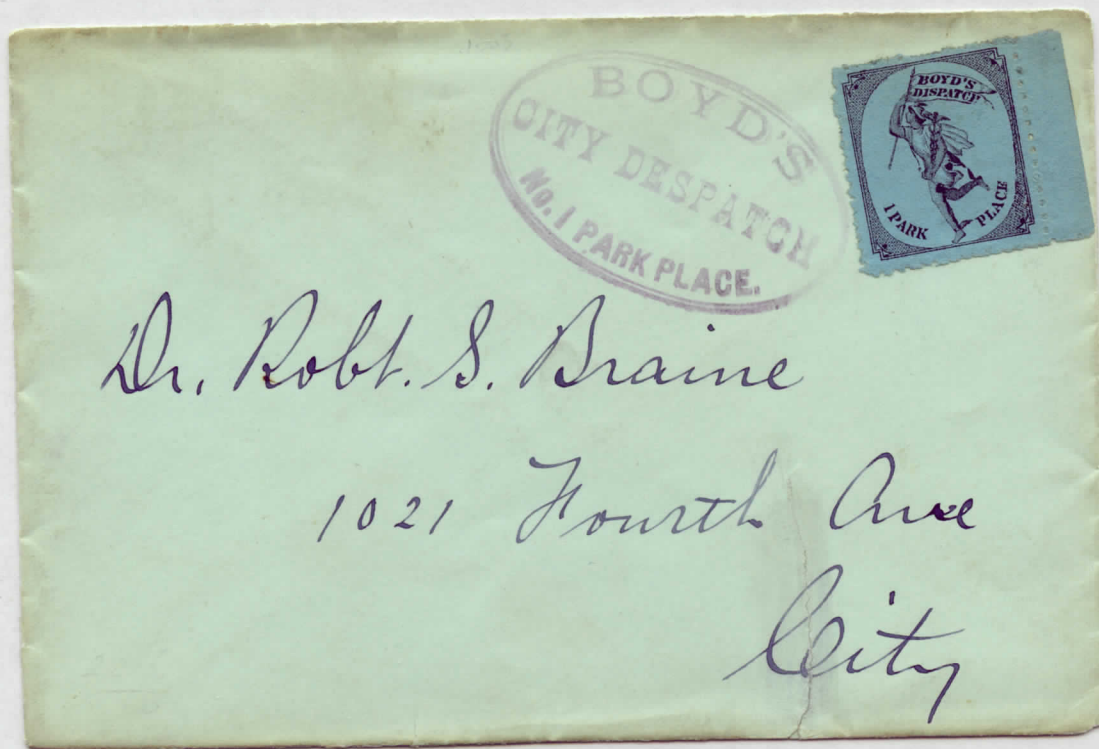 BOYD'S
CITY DESPATCH
No. 1 PARK PLACE.
BOYD'S
DISPATCH
1 PARK PLACE
Dr. Robt. S. Braine
1021 Fourth Ave
City